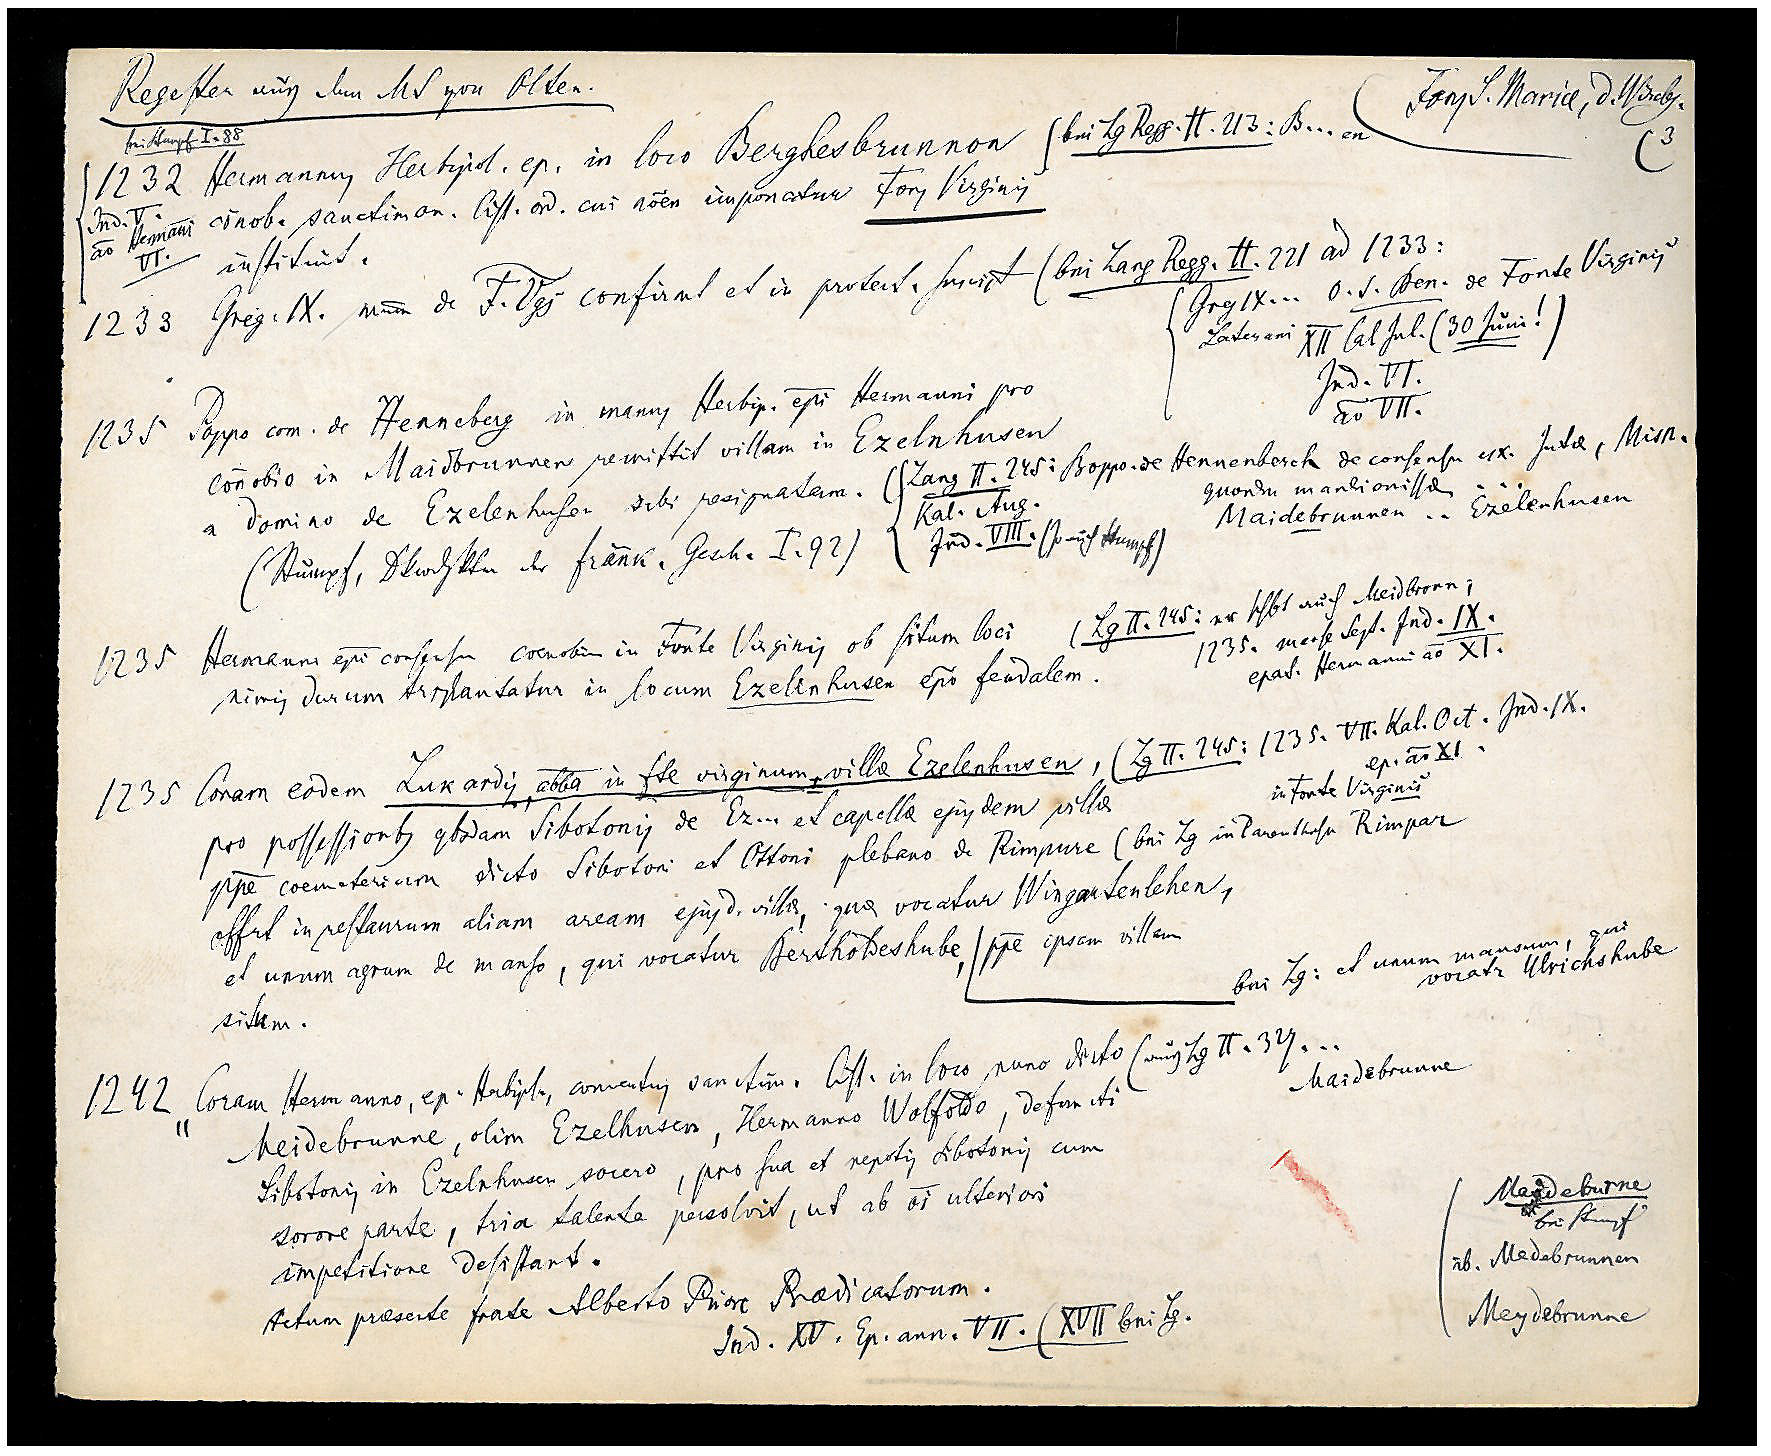 Regesten aus dem MS von Olten.
Fons S. Mariæ, d. Wirzbg.
(3
bei Stumpf I. 88
1232 Hermannus Herbipol. ep. in loco Berghesbrunnon (bei Lg Regg. II. 213: B... en
Ind. V. cœnob. sanctimon. Cist. ord. cui nōen imponatur Fons Virginis
āo Hermāni VI. instituit.
1233 Greg. IX. de F. Vgs confirmat et in protect. suscipit (bei Lang Regg. II. 221 ad 1233:
Greg IX... O. S. Ben. de Fonte Virginis
Laterani XII Cal Jul. (30 Juni!)
Ind. VI.
āo VII.
1235 Poppo com. de Henneberg in manus Herbip. epī Hermanni pro
cœnobio in Maidbrunnen remittit villam in Ezelnhusen
a domino de Ezelenhusen sibi resignatam. (Lang II. 245: Boppo de Hennenberch de consensu ux. Jutæ, Misn.
quondm marchionissæ ....
Kal. Aug. Maidebrunnen .. Ezelenhusen
Ind. VIII. (so auch Stumpf)
(Stumpf, Dkwdgktn der fränk. Gesch. I. 92)
1235 Hermanni epī consensu coenobiū in Fonte Virginis ob situm loci (Lg II. 245: er schbt auch Meidbronn;
nimis durum trsplantatur in locum Ezelenhusen epō feudalem. 1235. mense Sept. Ind. IX.
epat. Hermanni āo XI.
1235 Coram eodem Lukardis, abba in fte virginum, villæ Ezelenhusen, (Lg II. 245: 1235. VII. Kal. Oct. Ind. IX.
ep. āo XI.
in Fonte Virginis
pro possessionibs qbsdam Sibotonis de Ez... et capellæ ejusdem villæ
ppe coemeterium dicto Sibotoni et Ottoni plebano de Rimpure (bei Lg in Parenthesn Rimpar
offrt in restaurum aliam aream ejusd. villæ, quæ vocatur Wingartenlehen,
et unum agrum de manso, qui vocatur Bertholdeshube, ppe ipsam villam
bei Lg: et unum mansum, qui
vocatr Ulrichshube
situm.
1242 Coram Hermanno, ep. Herbipl., conventus sanctim. Cist. in loco nunc dicto (aus Lg II. 327...
Maidebrunne
" Meidebrunne, olim Ezelhusen, Hermanno Wolfoldo, defuncti
Sibotonis in Ezelnhusen socero, pro sua et nepotis Sibotonis cum
sorore parte, tria talenta persolvit, ut ab oī ulteriori
impetitione desistant.
Actum præsente fratre Alberto Priore Prædicatorum.
Ind. XV. Ep. ann. VII. (XVII bei Lg.
Maideburne
bei Stumpf
üb. Medebrunnen
Meydebrunne